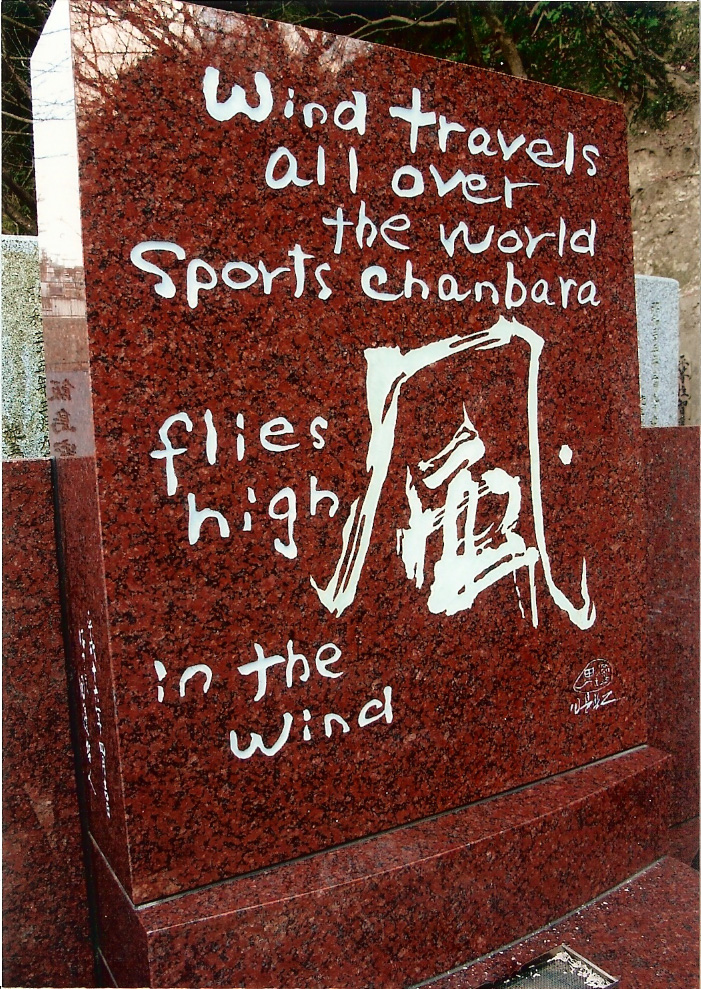 Wind travels
all over
the world
Sports chanbara
風
flies
high
in the
wind